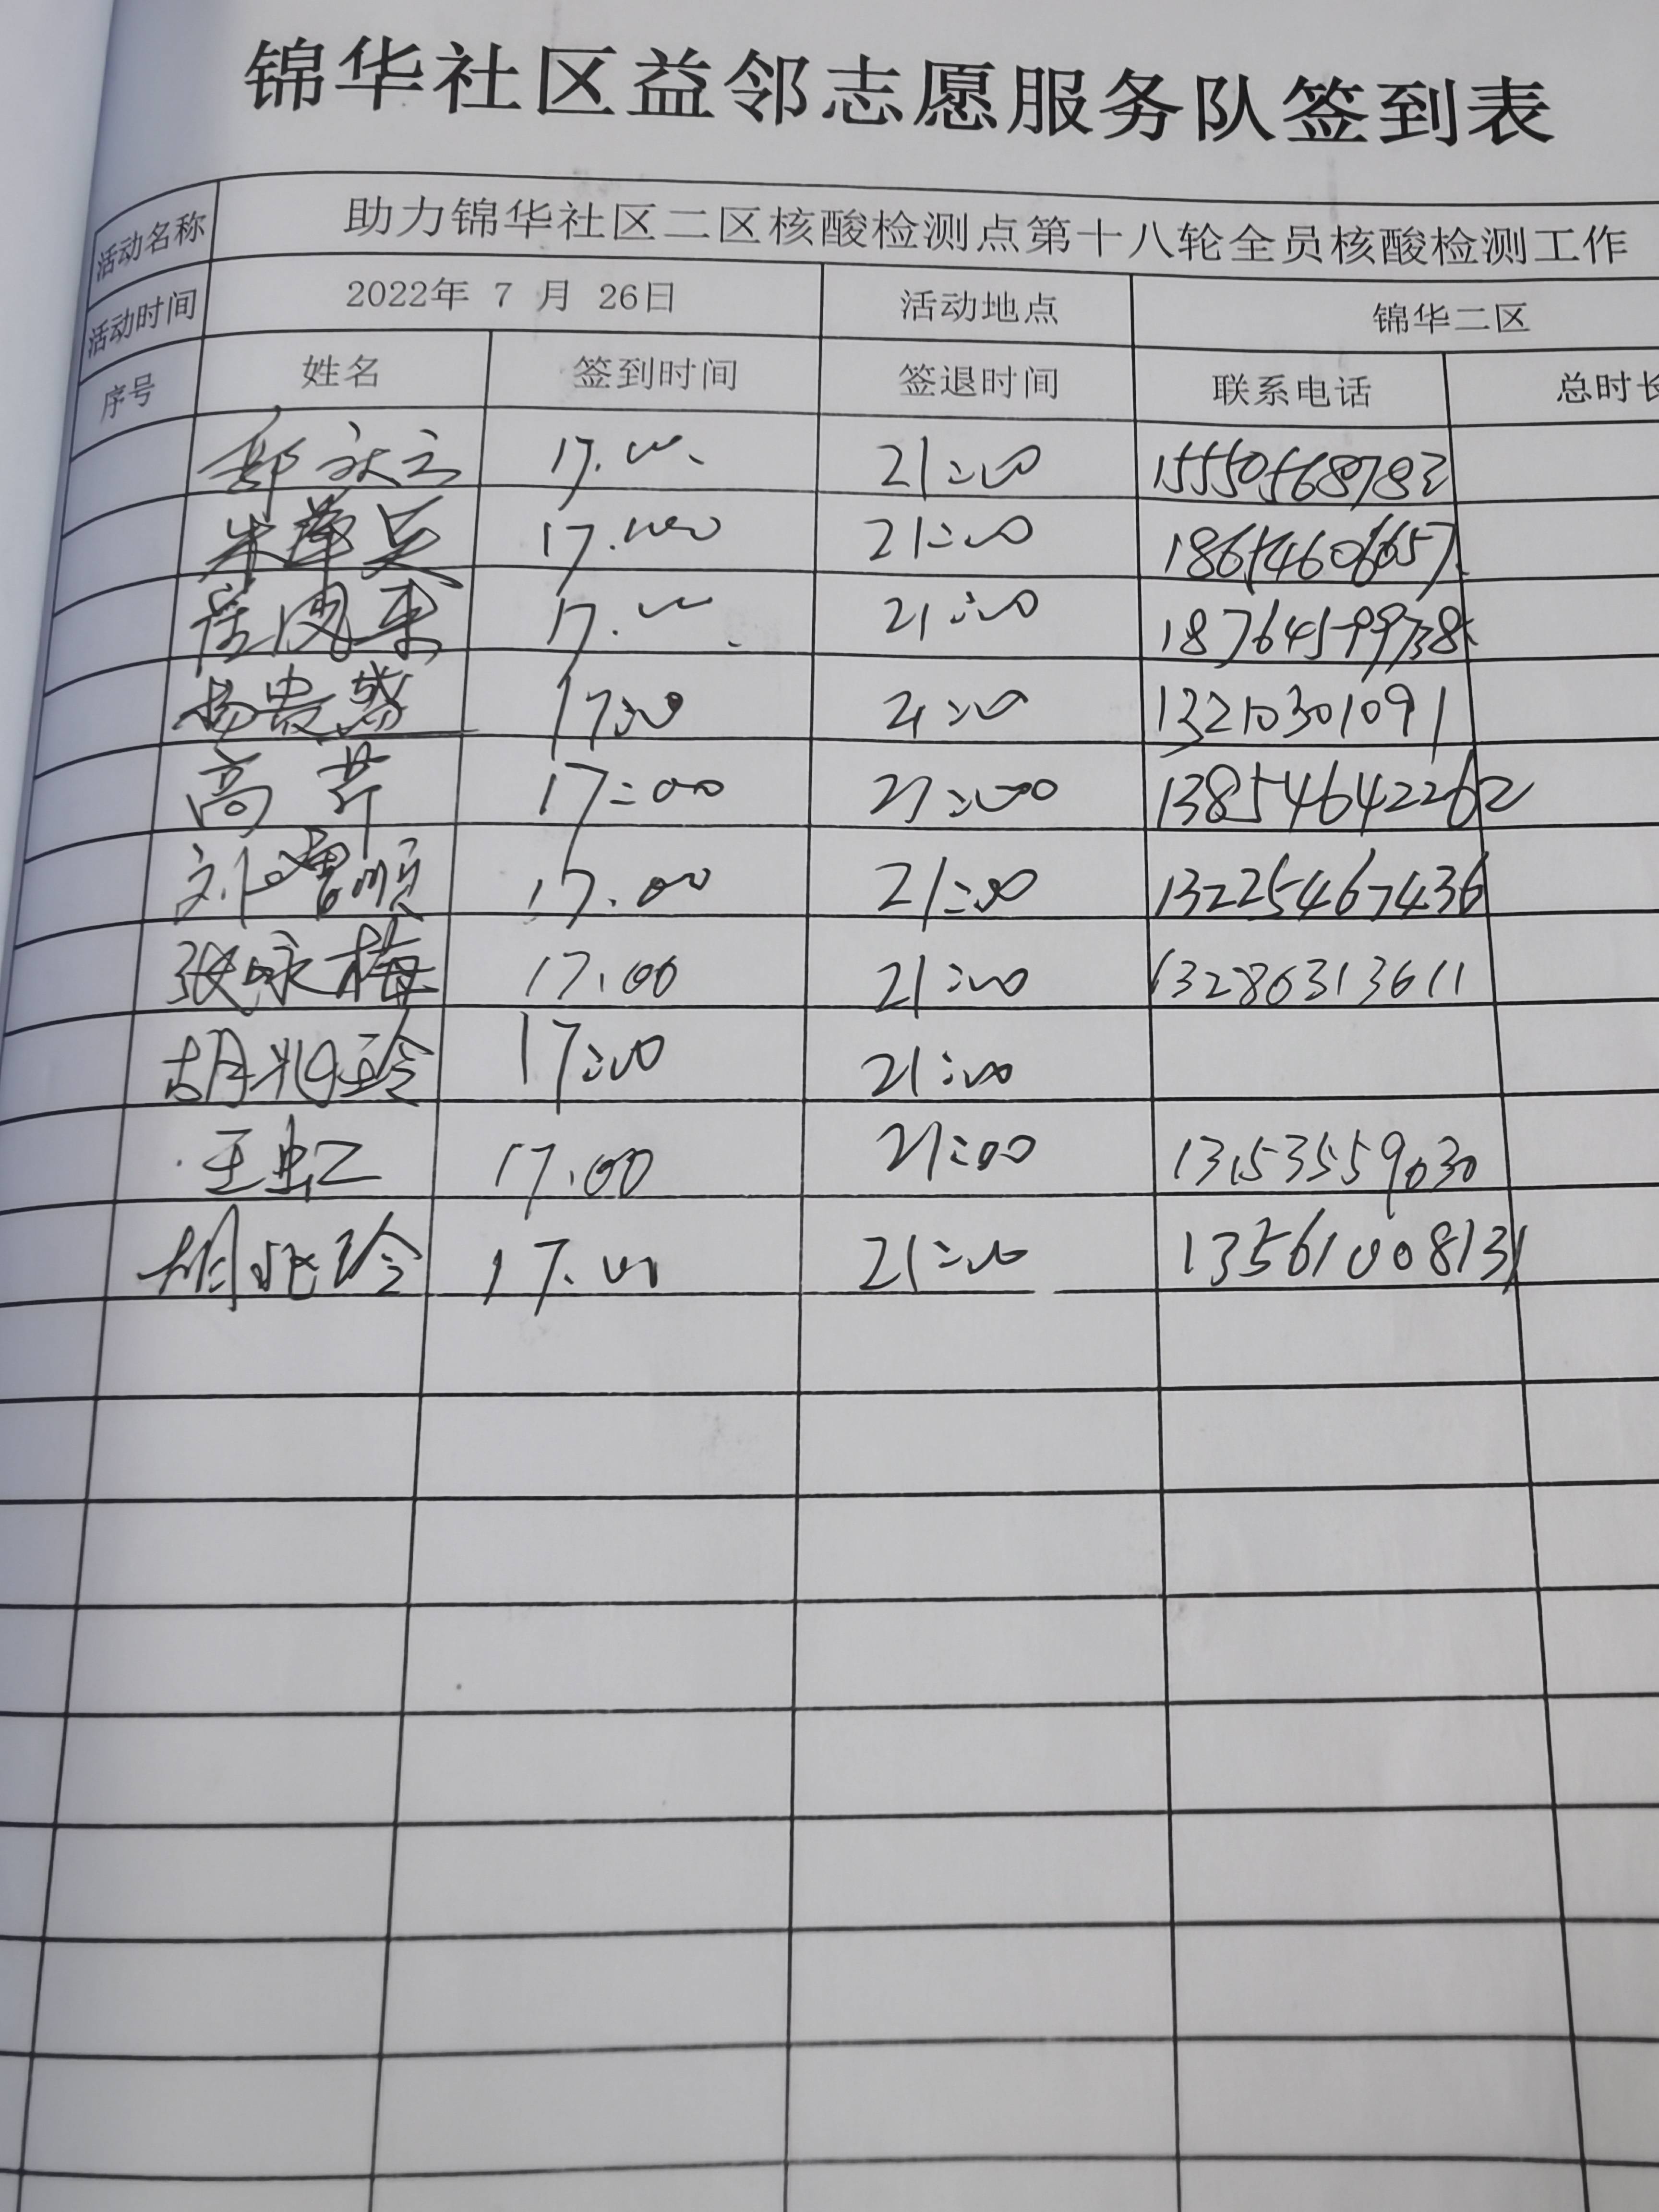 锦华社区益邻志愿服务队签到表
活动名称 助力锦华社区二区核酸检测点第十八轮全员核酸检测工作
活动时间 2022年 7 月 26日 活动地点 锦华二区
序号 姓名 签到时间 签退时间 联系电话 总时长
17.00 21:00 15550568783
17.00 21:00
17.00 21:00 18764599738
杨贵 17:00 21:00 13210301091
高芹 17:00 21:00 13854642262
刘增顺 17.00 21:00 13225467436
张咏梅 17.00 21:00 13280313611
胡兆玲 17:00 21:00
王虹 17.00 21:00 13153559030
胡兆玲 17.00 21:00 13561008131